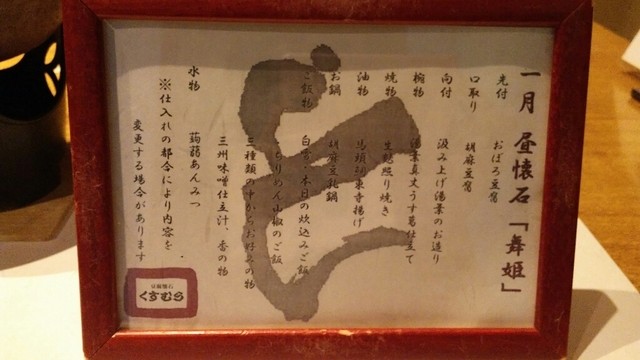 一月 昼懐石「舞姫」
先付 おぼろ豆腐
口取り 胡麻豆腐
向付 汲み上げ湯葉のお造り
椀物 湯葉真丈うす葛仕立て
焼物 生麩照り焼き
油物 馬頭切東寺揚げ
お鍋 胡麻豆乳鍋
ご飯物 白雪 本日の炊込みご飯
ちりめん山椒のご飯
三種類の中からお好みの物
三州味噌仕立汁、香の物
水物 蒟蒻あんみつ
※仕入れの都合により内容を
変更する場合があります。
豆腐懐石
くすむら